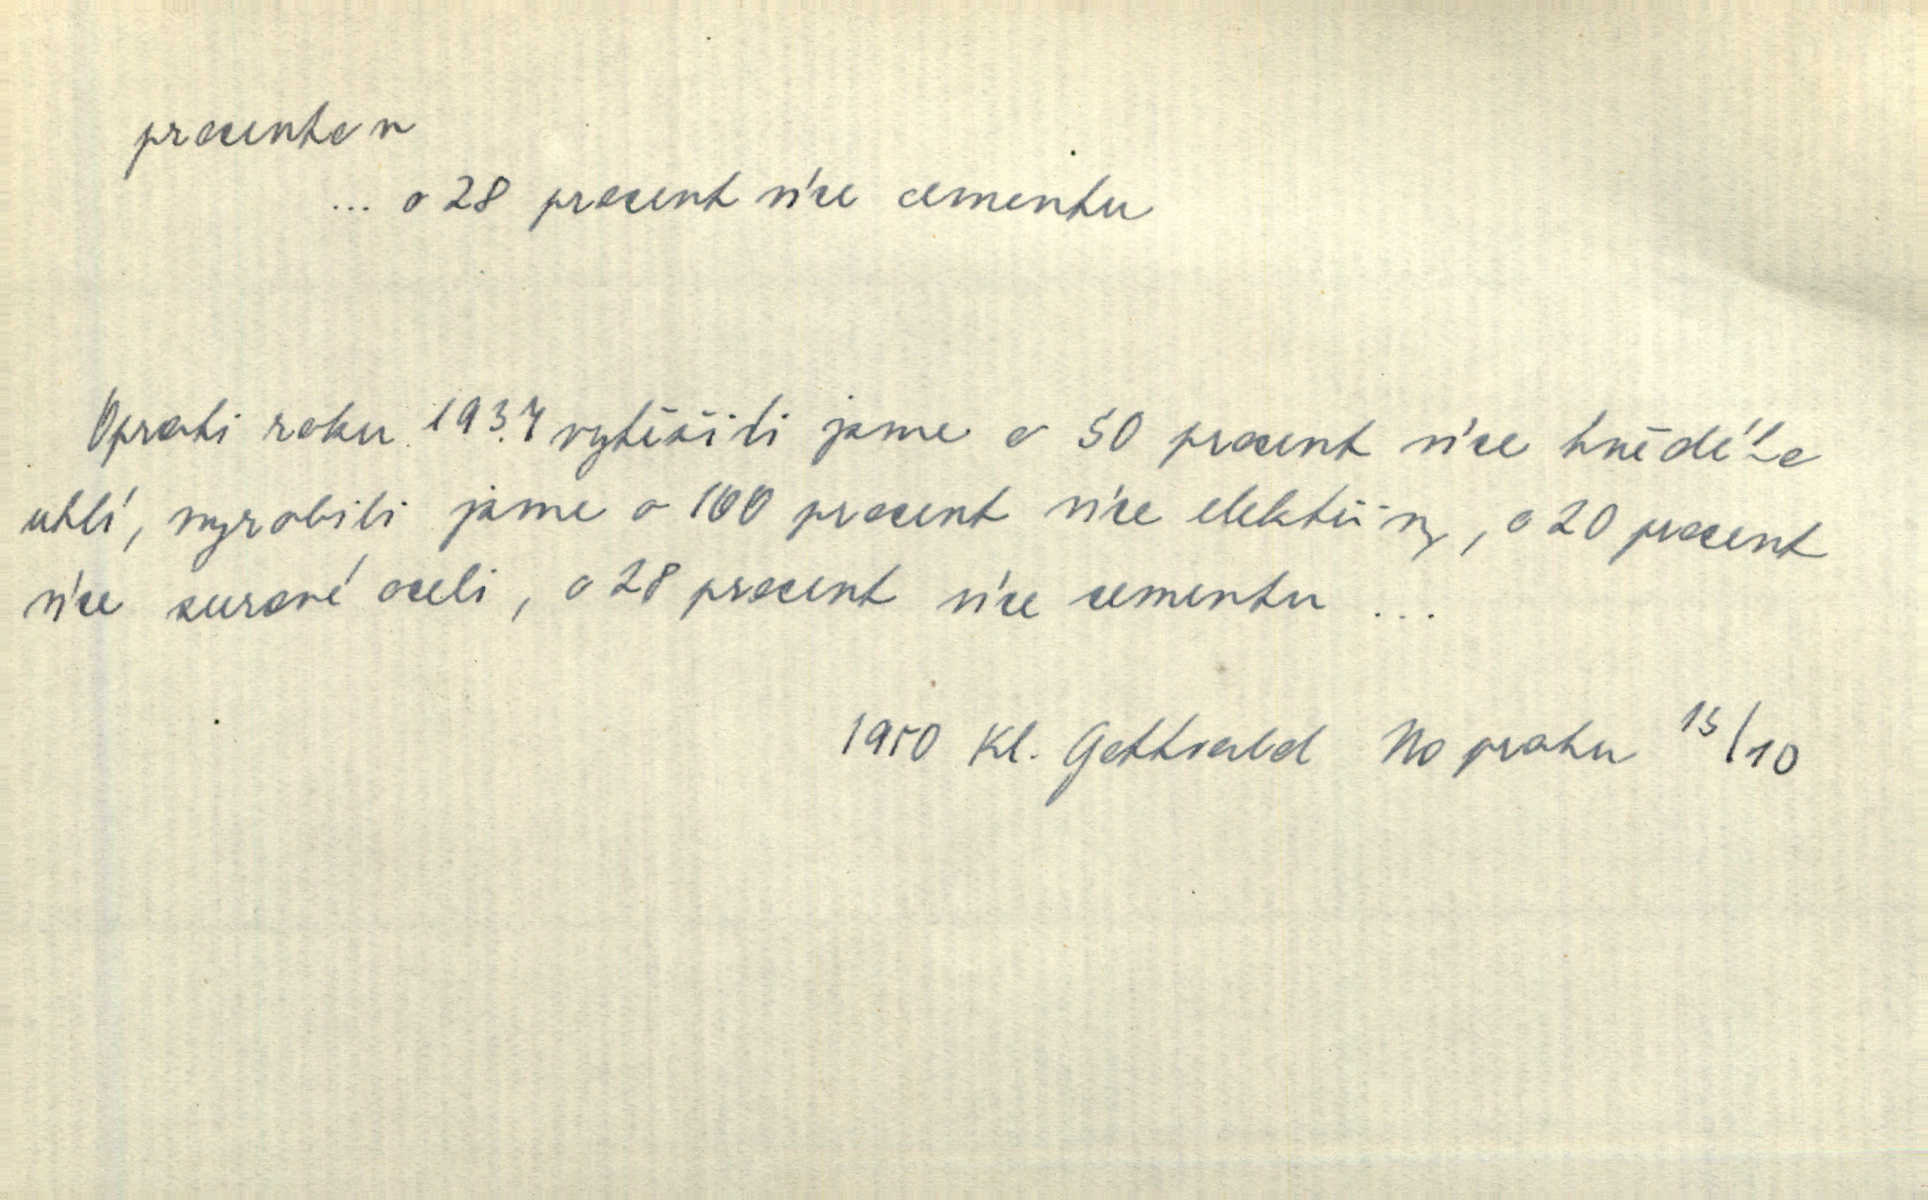 procento n
... o 28 procent více cementu
Oproti roku 1937 vytěžili jsme o 50 procent více hnědého
uhlí, vyrobili jsme o 100 procent více elektřiny, o 20 procent
více surové oceli, o 28 procent více cementu ...
1950 Kl. Gottwald Na prahu 13/10